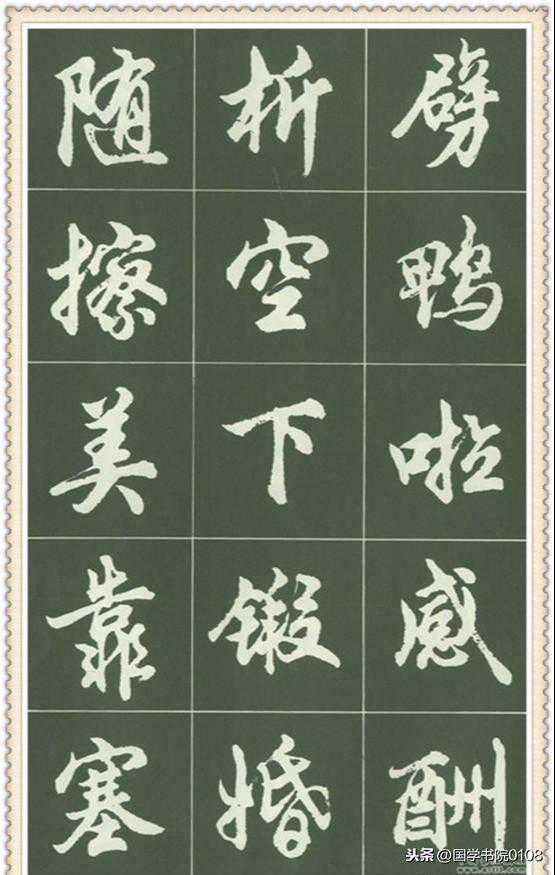 劈鸭啦感酬
析空下锻婚
随擦美靠塞
头条 @国学书院0108